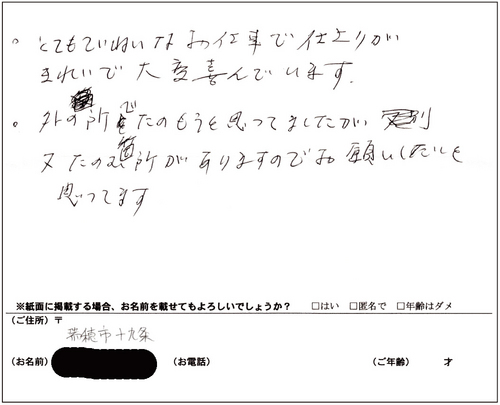 。とてもていねいなお仕事で仕上りが
きれいで大変喜んでいます.
。外の所でたのもうと思ってましたが 別
又たのむ箇所がありますのでお願いしたいと
思ってます
※紙面に掲載する場合、お名前を載せてもよろしいでしょうか？ □はい □匿名で □年齢はダメ
(ご住所) 〒
瑞穂市十九条
(お名前) (お電話) (ご年齢) 才